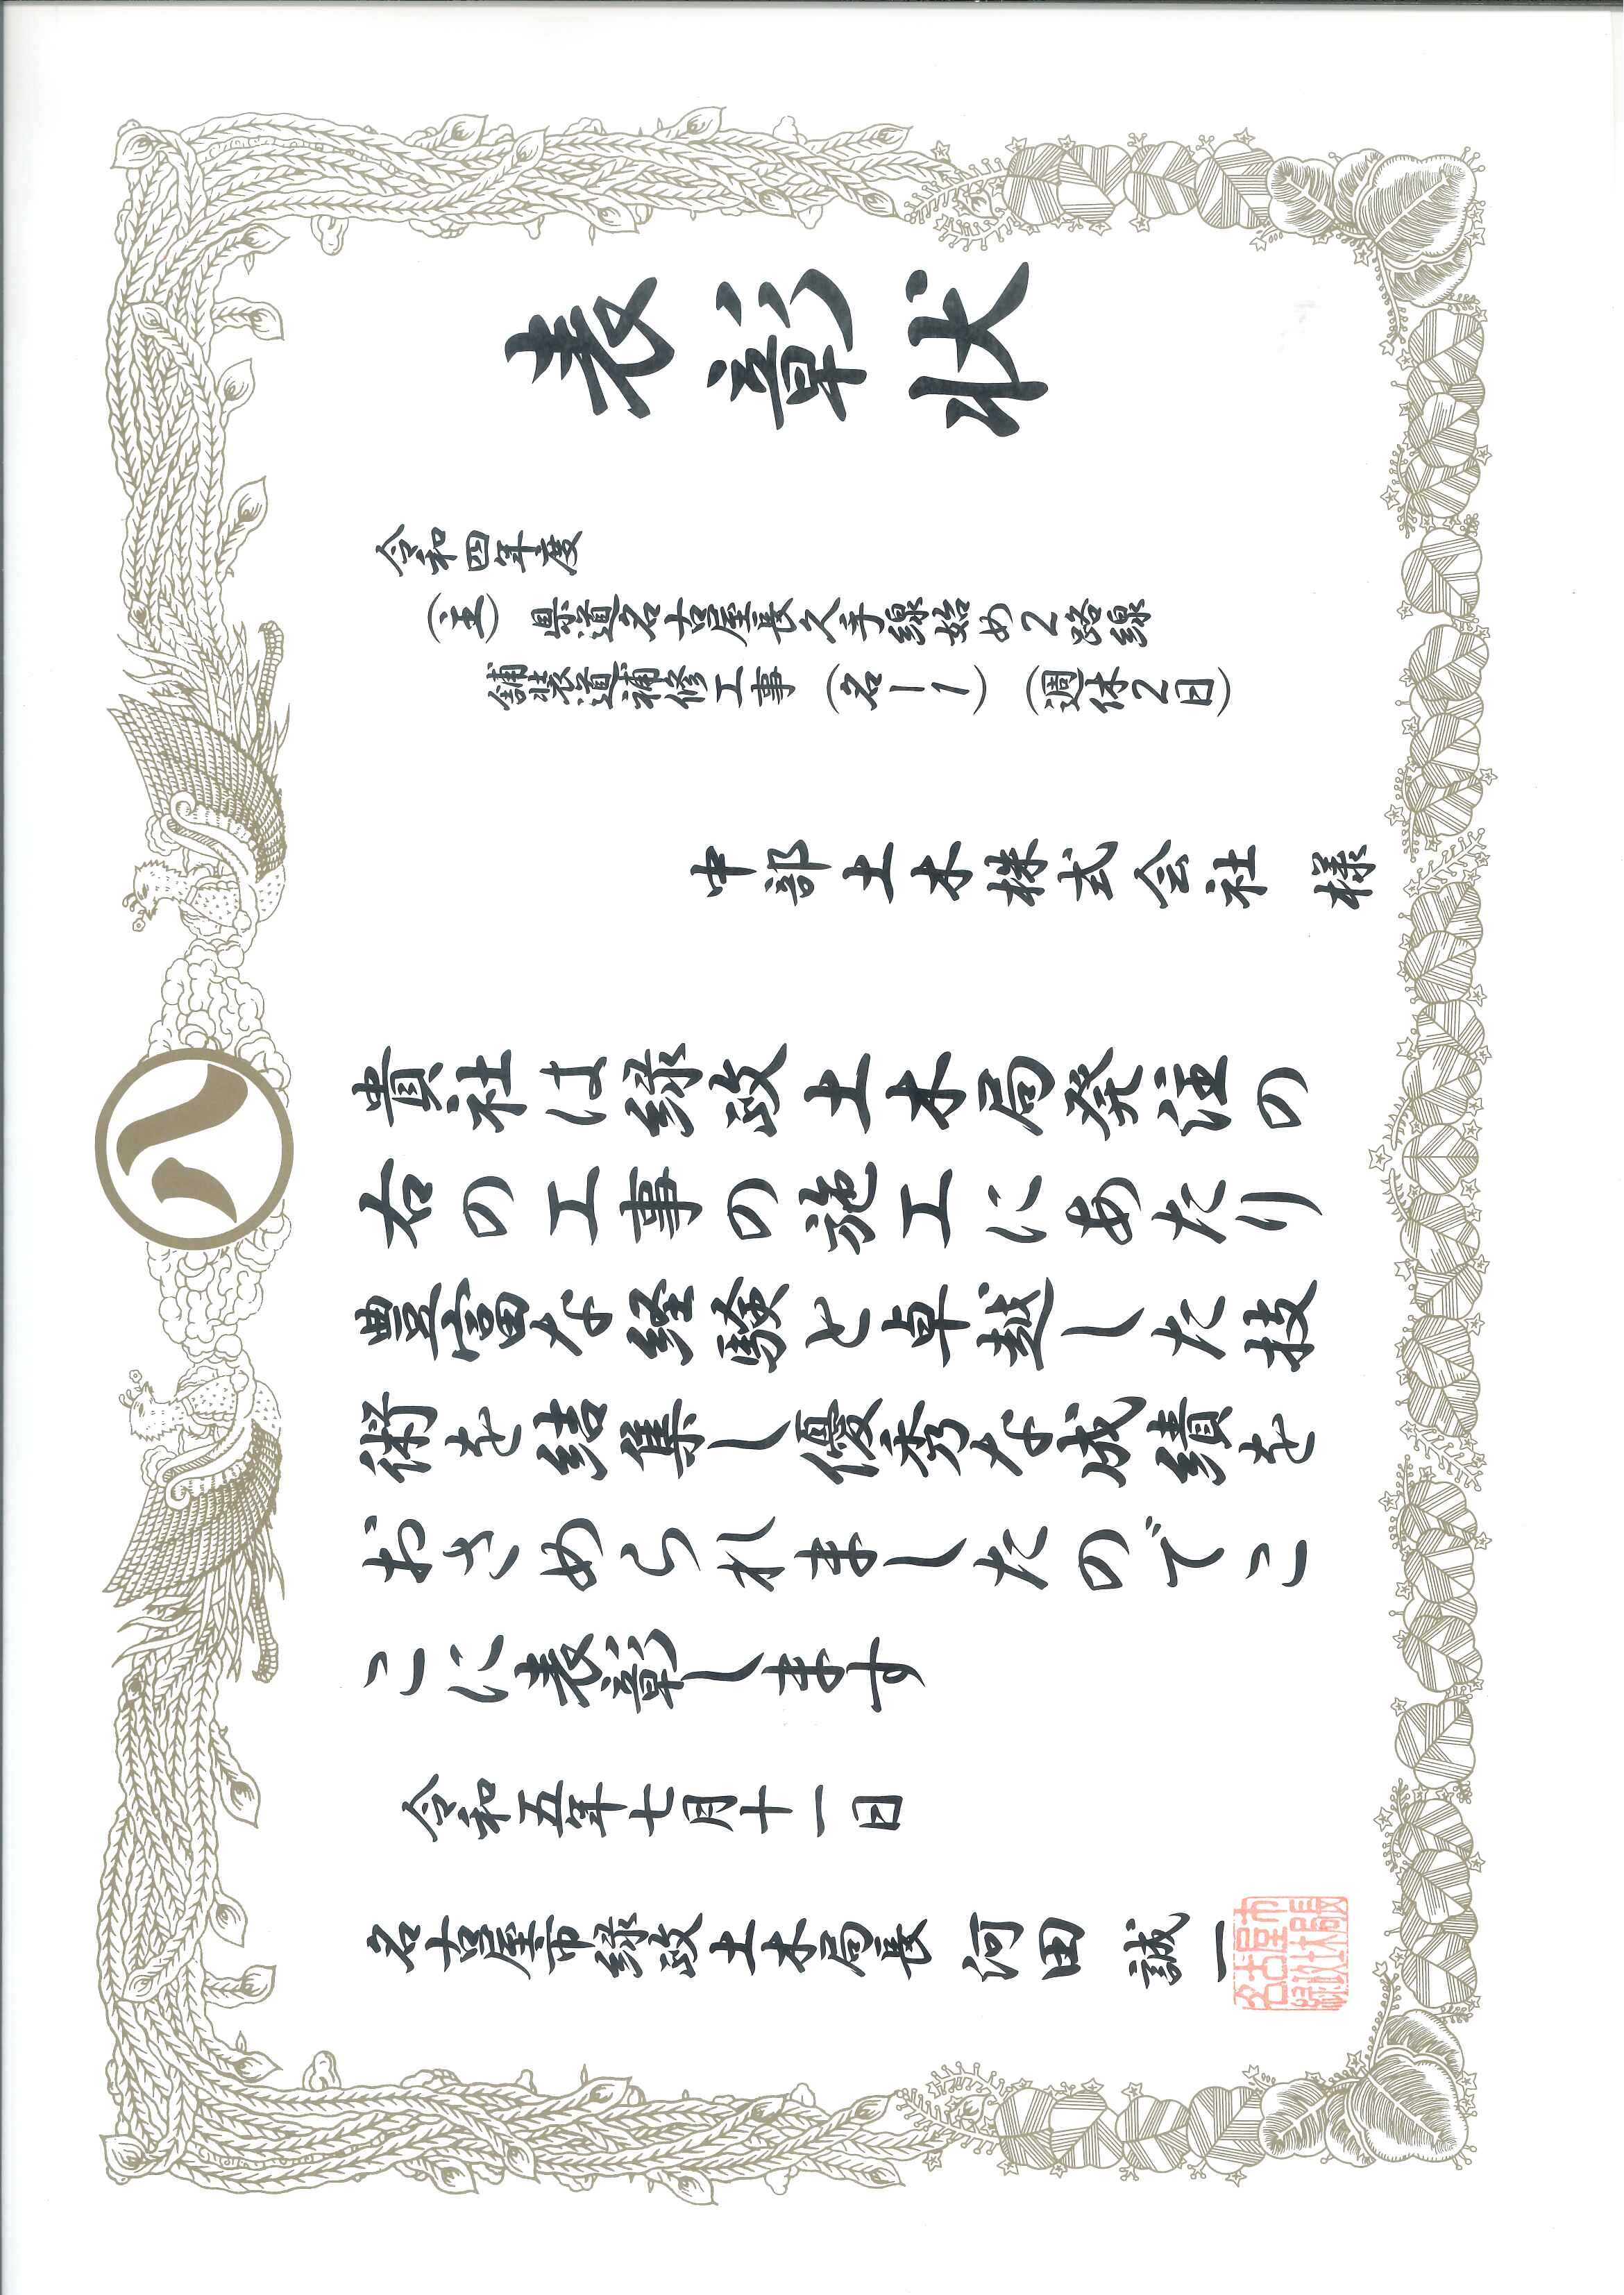 表彰状
令和四年度
(主)県道名古屋長久手線始め2路線
舗装道補修工事(名-1)(週休2日)
中部土木株式会社 様
貴社は緑政土木局発注の
右の工事の施工にあたり
豊富な経験と卓越した技
術を結集し優秀な成績を
おさめられましたのでこ
こに表彰します
令和五年七月十一日
名古屋市緑政土木局長 河田 誠一